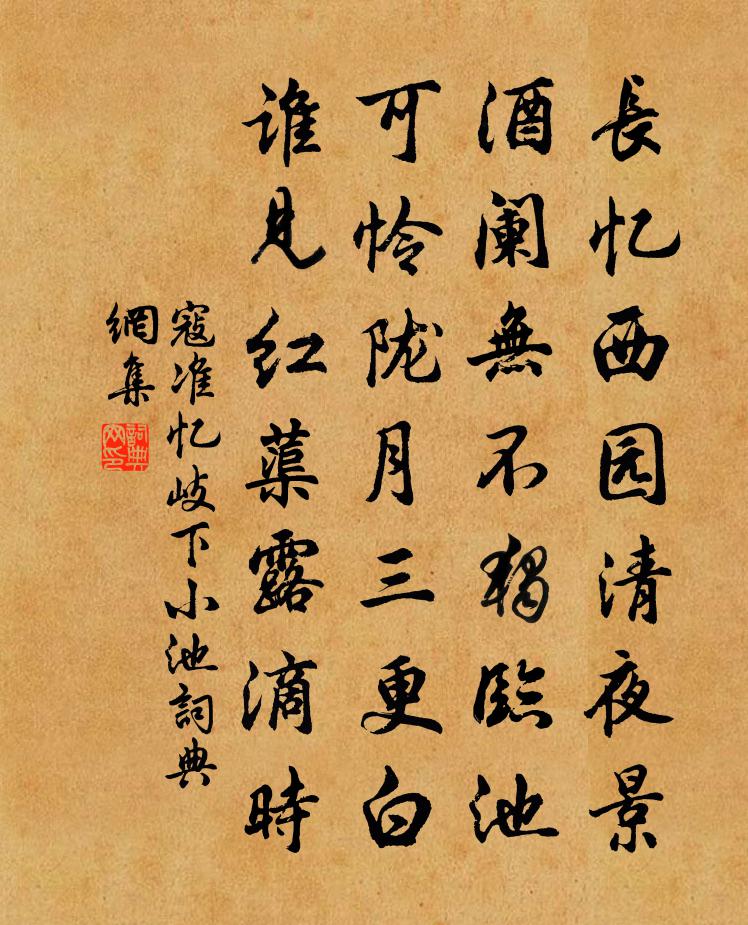 長忆西园清夜景
酒阑無不獨臨池
可怜陇月三更白
谁见红蕖露滴時
寇准忆岐下小池詞典
網集
詞典
网印